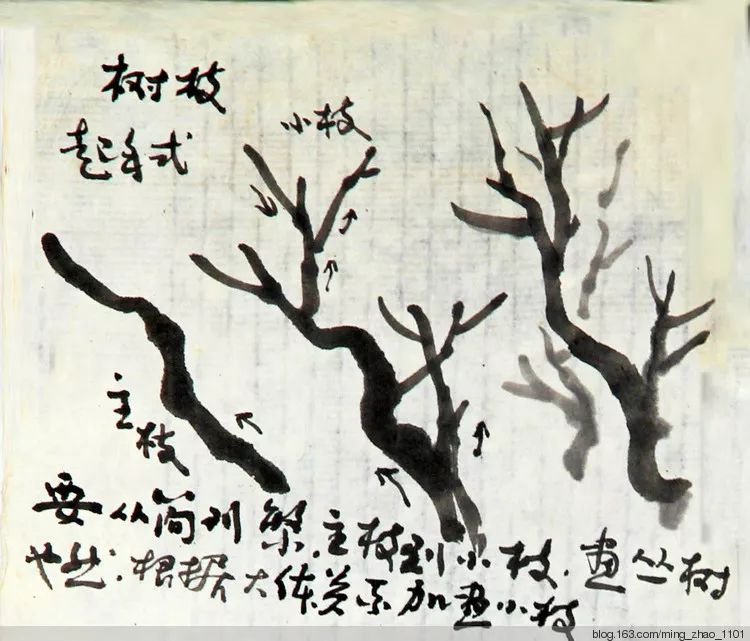 树枝
起手式
小枝
主枝
要从简到繁.主枝到小枝.画丛树
也然.根据大体关系加画小枝
blog.163.com/ming_zhao_1101